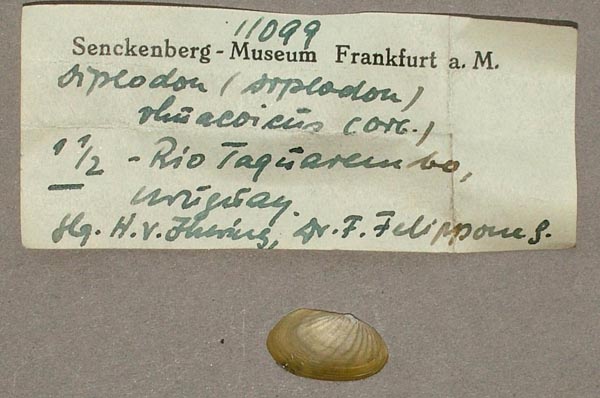 11099
Senckenberg-Museum Frankfurt a. M.
Diplodon (Diplodon)
rhuacoicus (Orb.)
1 1/2 - Rio Taquarembo,
Uruguay.
Slg. H. v. Ihering, Dr. F. Felippone G.